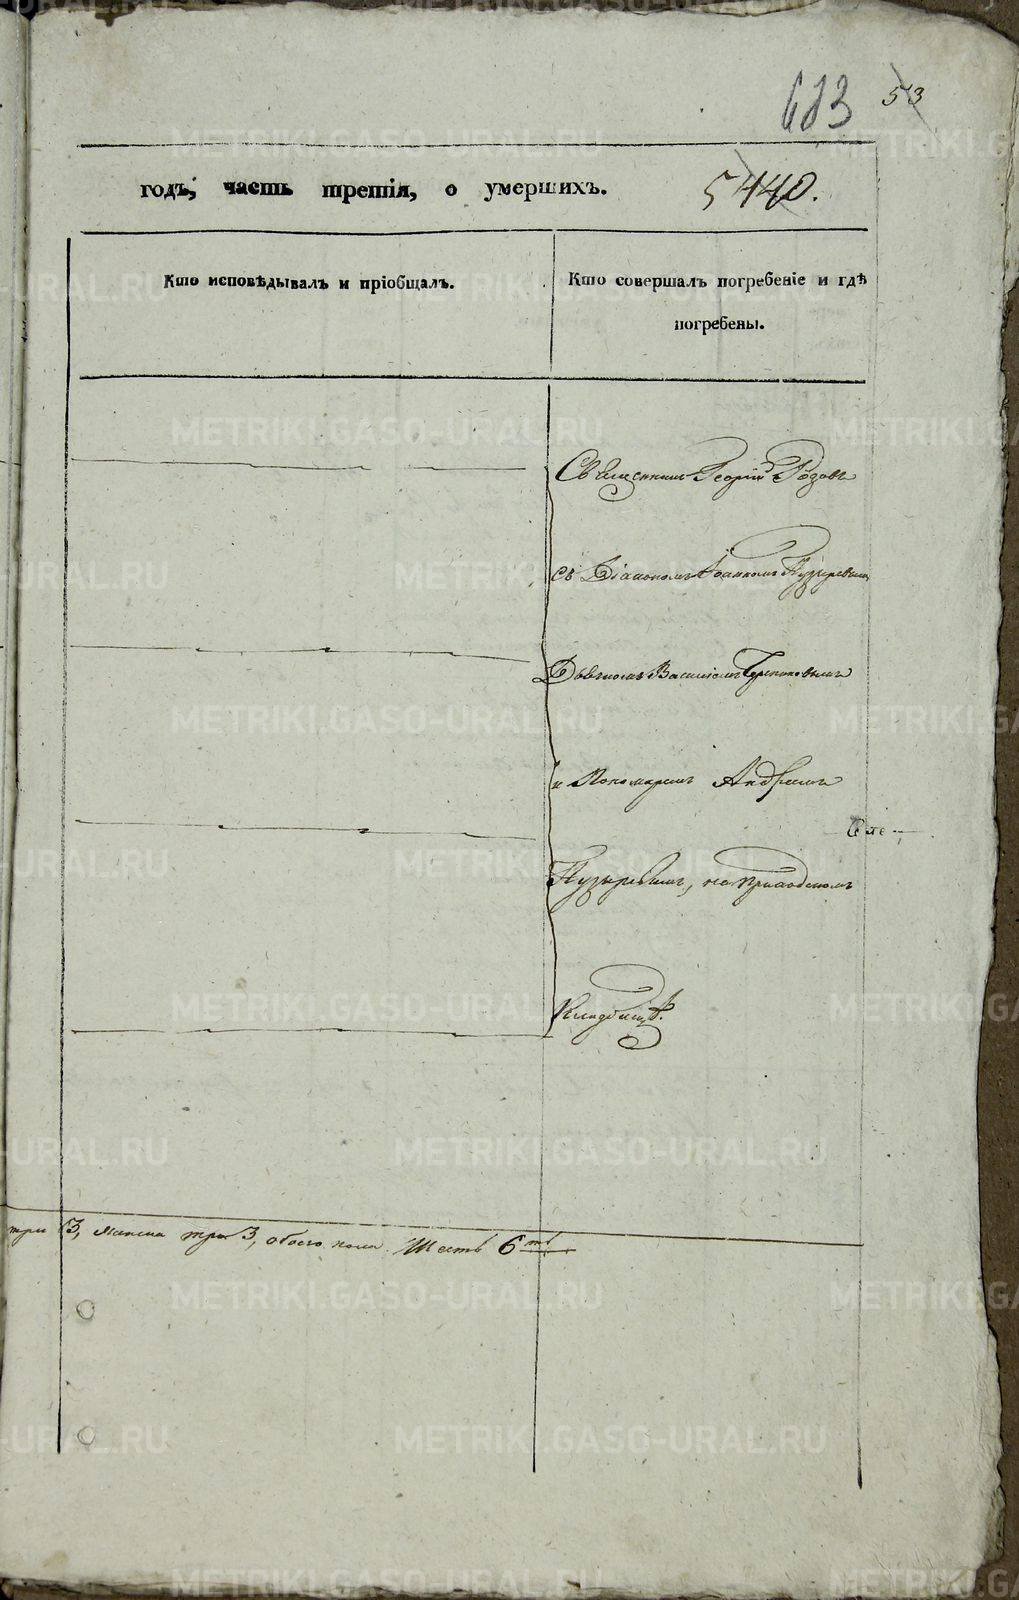 683 53
годъ, часть третія, о умершихъ. 5440.
Кто исповѣдывалъ и пріобщалъ.
Кто совершалъ погребеніе и гдѣ
погребены.
Священникъ Георгій Розовъ
съ Діакономъ Іоанномъ Пузыревымъ
Дьячкомъ Василіемъ
и Пономаремъ Андреемъ
Пузыревымъ, на приходскомъ
Кладбищѣ.
три 3, женска три 3, обоего пола Шесть 6ть
METRIKI.GASO-URAL.RU